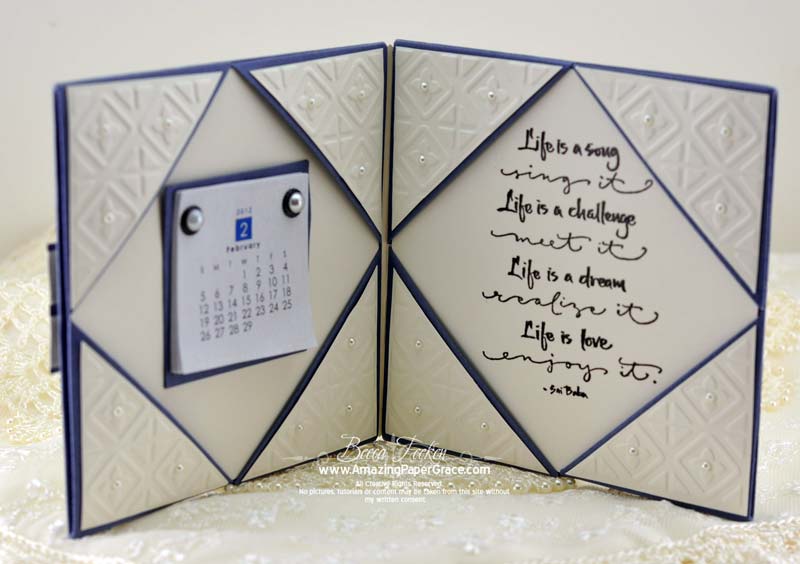 2012
2
February
S M T W T F S
1 2 3 4
5 6 7 8 9 10 11
12 13 14 15 16 17 18
19 20 21 22 23 24 25
26 27 28 29
Life is a song
sing it
Life is a challenge
meet it
Life is a dream
realize it
Life is love
enjoy it.
- Sai Baba
Becca Feeken
www.AmazingPaperGrace.com
All Creative Rights Reserved.
No pictures, tutorials or content may be taken from this site without
my written consent.